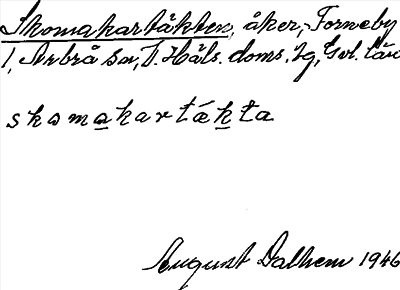 Skomakartäkten, åker, Forneby
1, Arbrå sn, V. Häls. doms. tg, Gvl. län
skomakartäkta
August Dalhem 1946